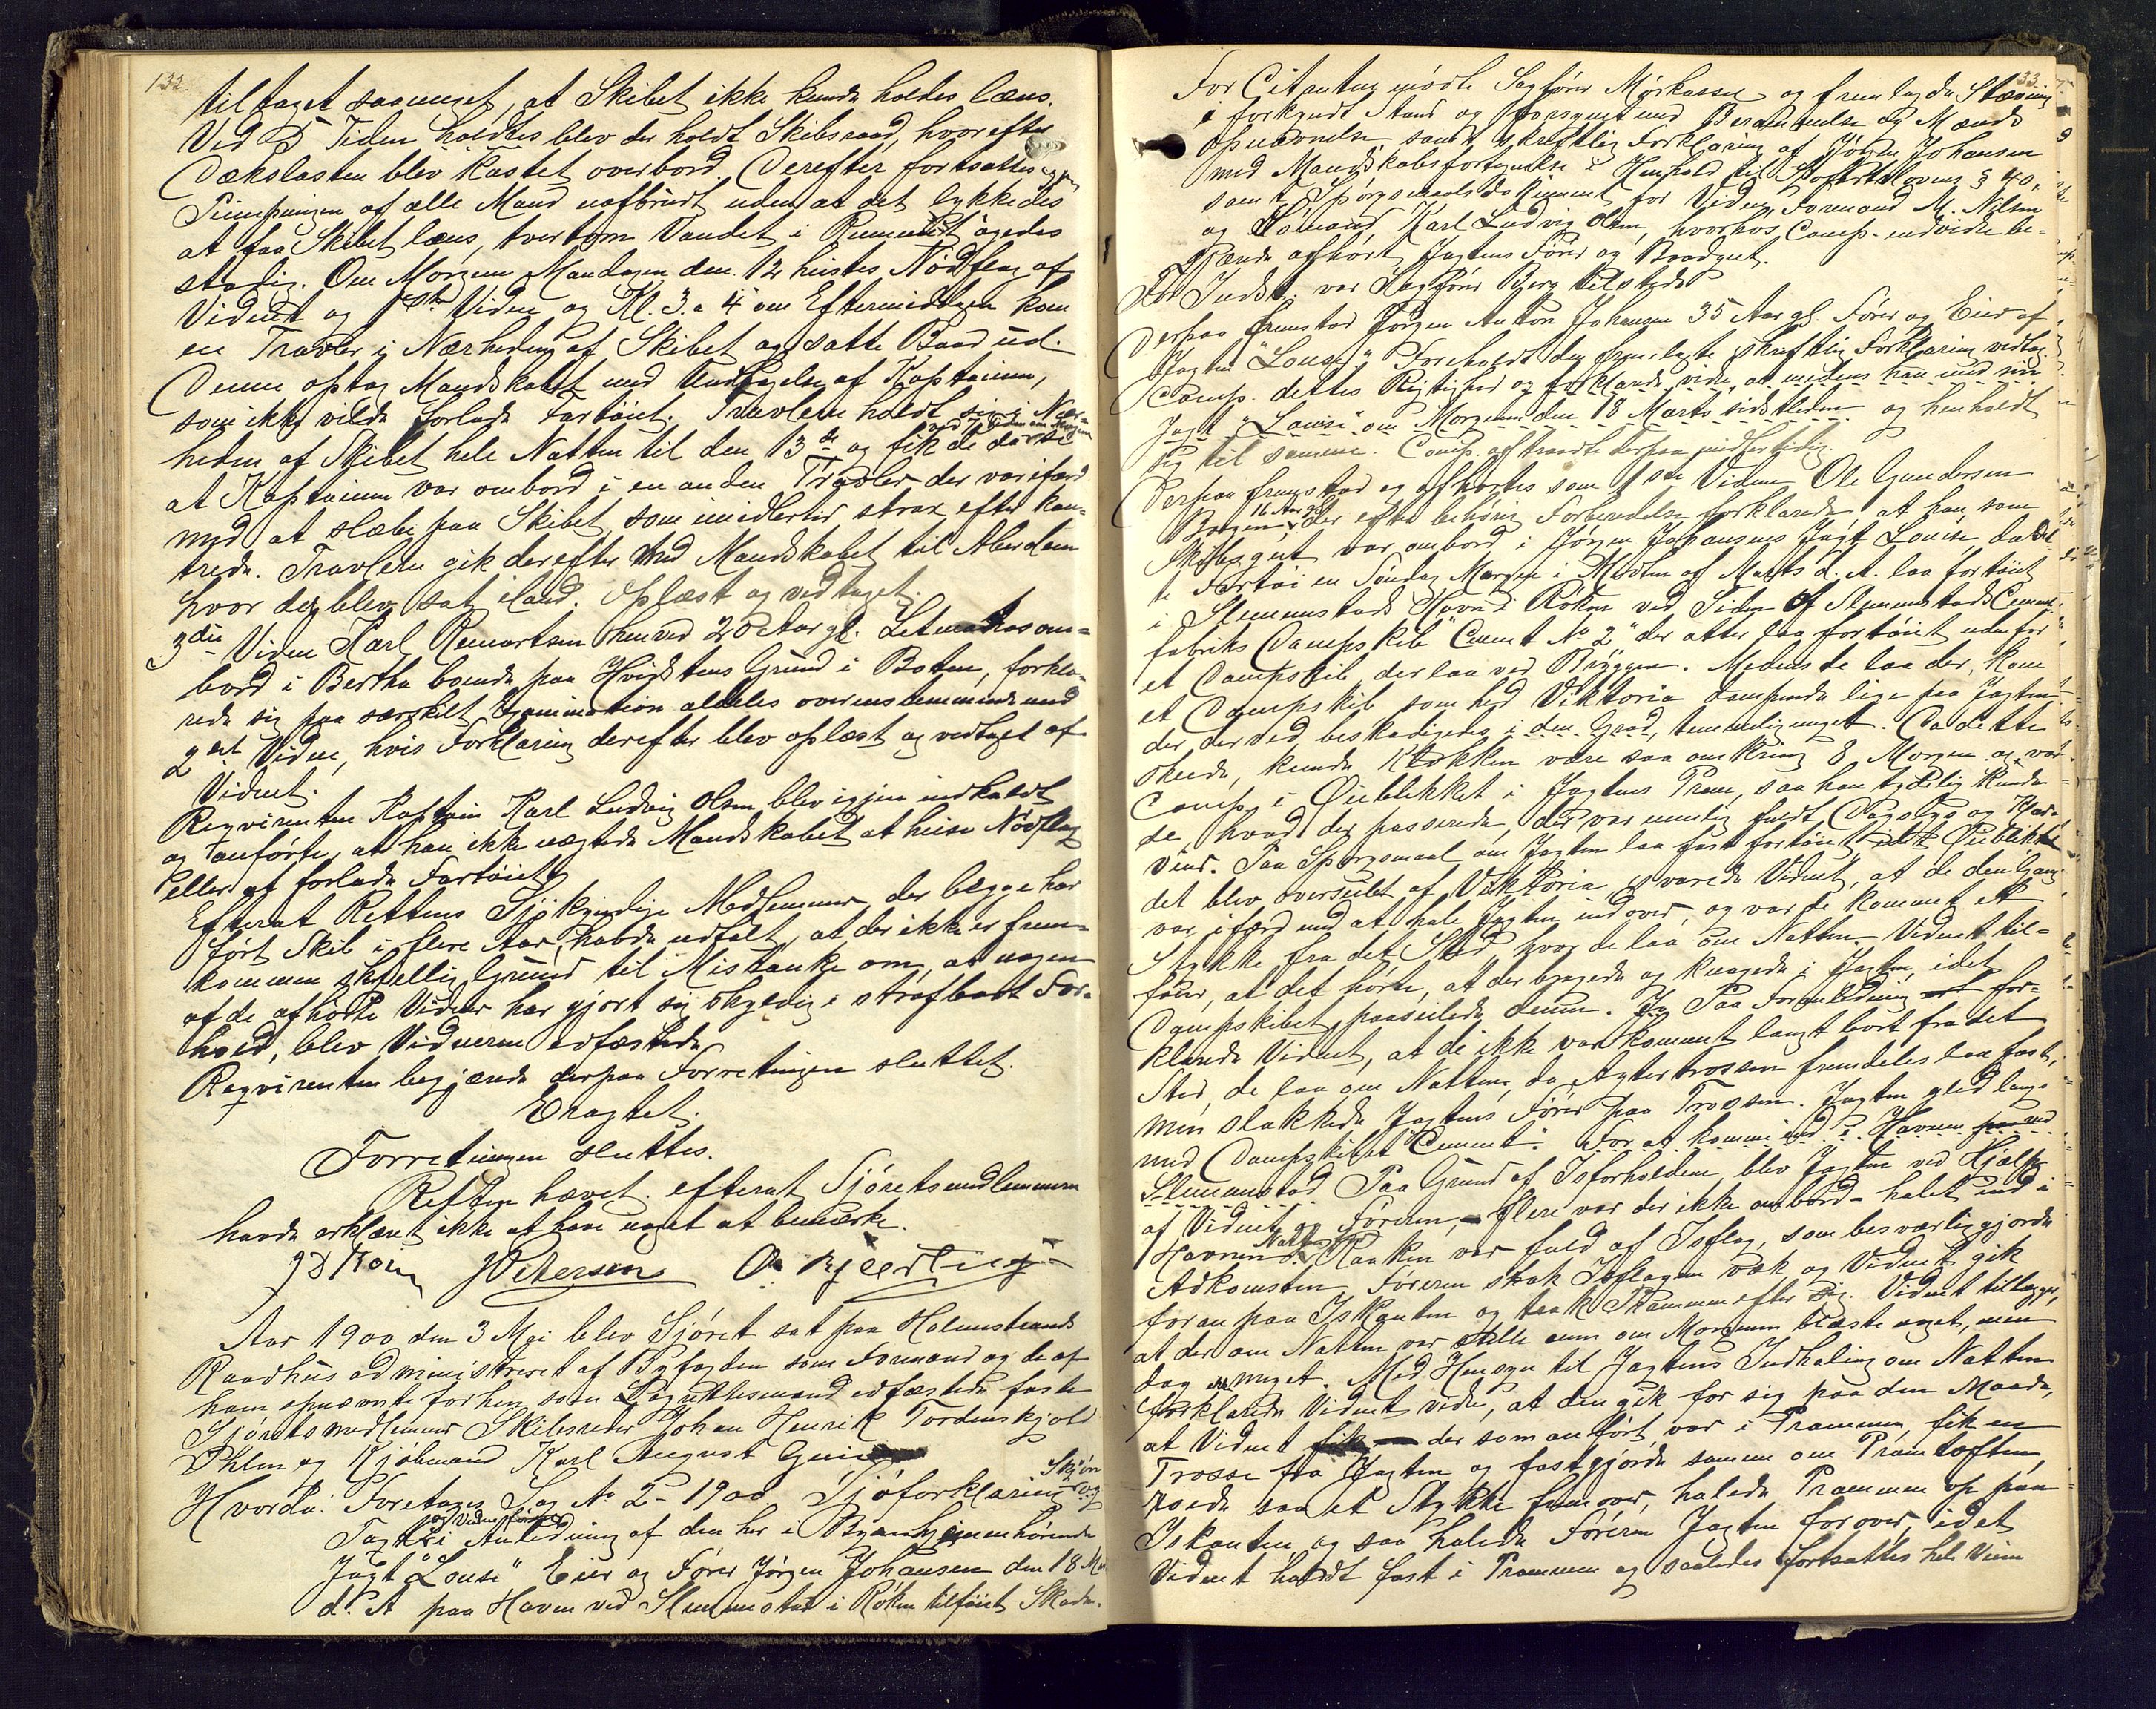 132.
tiltaget saameget, at Skibet ikke kunde holdes læns.
Ved 5 Tiden holdtes blev der holdt Skibsraad, hvorefter
Dækslasten blev kastet overbord. Derefter fortsattes igjen
Pumpningen af alle Mand uafbrudt uden at det lykkedes
at faa Skibet læns, tvertom Vandet i Rummet øgedes
stadig. Om Morgenen Mandagen den 12 heistes Nødflag af
Vidnet og 1ste Vidne og Kl. 3 a 4 om Eftermiddagen kom
en Travler i Nærheden af Skibet og satte Baad ud.
Denne optog Mandskabet med Undtagelse af Kaptainen,
som ikke vilde forlade Fartøiet. Travleren holdt sig i Nær-
heden af Skibet hele Natten til den 13de og fik de da se
ved 7 Tiden om Morgenen
at Kaptainen var ombord i en anden Travler der var ifærd
med at slæbe paa Skibet som imidlertid strax efter kan-
trede. Travleren gik derefter med Mandskabet til Aberdeen
hvor de blev sat iland. Oplæst og vedtaget.
3die Vidne Karl Reinertsen henved 20 Aar gl. Letmatros om-
bord i Bertha boende paa Hvidstens Grund i Botne, forkla-
rede sig paa særskilt Examination aldeles overensstemmende med
2det Vidne, hvis Forklaring derefter blev oplæst og vedtaget af
Vidnet.
Reqvirenten Kaptein Karl Ludvig Olsen blev igjen indkaldt
og anførte, at han ikke nægtede Mandskabet at heise Nødflag
eller at forlade Fartøiet.
Efterat Rettens Sjøkyndige Medlemmer, der begge har
ført Skib i flere Aar, havde udtalt, at der ikke er frem-
kommen skjellig Grund til Mistanke om, at nogen
af de afhørte Vidner har gjort sig skyldig i strafbart For-
hold, blev Vidnerne edfæstede.
Reqvirenten begjærede derpaa Forretningen sluttet.
Eragtet:
Forretningen sluttes.
Retten hævet. efterat Sjøretsmedlemmerne
havde erklæret ikke at have noget at bemærke.
J Petersen
Aar 1900 den 3 Mai blev Sjøret sat paa Holmestrands
Raadhus administreret af Byfogden som Formand og de af
ham opnævnte forhen som Lagrettesmænd edfæstede faste
Sjøretsmedlemmer Skibsreder Johan Henrik Tordenskjold
Ihlen og Kjøbmand Karl August
Hvorda: Foretages Sag No 2 - 1900 Sjøforklaring Skjøn og
og Vidneførsel
Taxt i Anledning af den her i Byen hjemmehørende
Jagt "Louise" Eier og Fører Jørgen Johansen den 18 Ma
d. A. paa Havnen ved Slemmestad i Røken tilføiet Skade.
33.
For Citanten mødte Sagfører Mørkassel og fremlagde Stævning
i forkyndt Stand og forsynet med Berammelse og Mænds
opnævnelse samt skriftlig Forklaring af Jørgen Johansen
med Mandskabsfortegnelse i Henhold til Sjøfartslovens § 40,
samt Spørgsmaalsdokument for Vidne, Formand M. Nilsen
og Sømand, Karl Ludvig Olsen, hvorhos Comp. endvidere be-
gjærede afhørt Jagtens Fører og Baadgut.
For Indst. var Sagfører Berg tilstede.
Derpaa fremstod Jørgen Anton Johansen 35 Aar gl. Fører og Eier af
Jagten "Louise". Foreholdt den fremlagte skriftlige Forklaring vedtog
Comp. dettes Rigtighed og forklarede videre, at medens han med sin
Jagt "Louise" om Morgenen den 18 Marts sidstleden og henholdt
sig til samme. Comp. aftraadte derpaa midlertidig.
Derpaa fremstod og afhørtes som 1ste Vidne Ole Gundersen
Borgen 16 Aar gl. der efter behørig Forberedelse forklarede at han som
Skibsgut var ombord i Jørgen Johansens Jagt Louise, da det-
te Fartøi en Søndag Morgen i Midten af Marts d. A. laa fortøiet
i Slemmestads Havn i Røken ved Siden af Slemmestads Cement-
fabriks Dampskib "Cement No 2" der atter laa fortøiet udenfor
et Dampskib, der laa ved Bryggen. Medens de laa der, kom
et Dampskib som hed Viktoria dampende lige paa Jagten
der derved beskadigedes i den Grad, temmelig meget. Da dette
skede, kunde Klokken være saa omkring 8 Morgen og var
Comp. i Øieblikket i Jagtens Pram, saa han tydelig kunde
se hvad der passerede, der var nemlig fuldt Dagslys og
Veir. Paa Spørgsmaal om Jagten laa fast fortøiet i det Øieblikket
det blev overseilet af Viktoria svarede Vidnet, at de den Gang
var ifærd med at hale Jagten indover, og var de kommet et
Stykke fra det Sted hvor de laa om Natten. Vidnet til-
føier, at det hørte, at der bragede og knagede i Jagten, idet
Dampskibet paaseilede denne. Paa Foranledning for-
klarede Vidnet, at de ikke var kommet langt bort fra det
Sted, de laa om Natten, da Agtertrossen fremdeles laa fast,
men slakkede Jagtens Fører paa Trossen. Jagten gled langs
med Dampskibet "Cement". For at komme ind i Havnen ved
Slemmestad. Paa Grund af Isforholdene blev Jagten ved Hjælp
af Vidnet og Føreren, – flere var der ikke ombord – halet ind i
Havnen. Raaken var fuld af Isflag, som besværliggjorde
Adkomsten. Føreren stak Isflagene væk og Vidnet gik
foran paa Iskanten og trak Prammen efter sig. Vidnet tillægger,
at der om Natten var stille men om Morgenen blæste noget, men
dog ei meget. Med Hensyn til Jagtens Indhaling om Natten
forklarede Vidnet videre, at den gik for sig paa den Maade,
at Vidnet der som anført var i Prammen, fik en
Trosse fra Jagten og fastgjorde samme om Pramtoften,
roede saa et Stykke fremover, halede Prammen op paa
Iskanten og saa halede Føreren Jagten forover, idet
Vidnet holdt fast i Prammen og saaledes fortsattes hele Veien